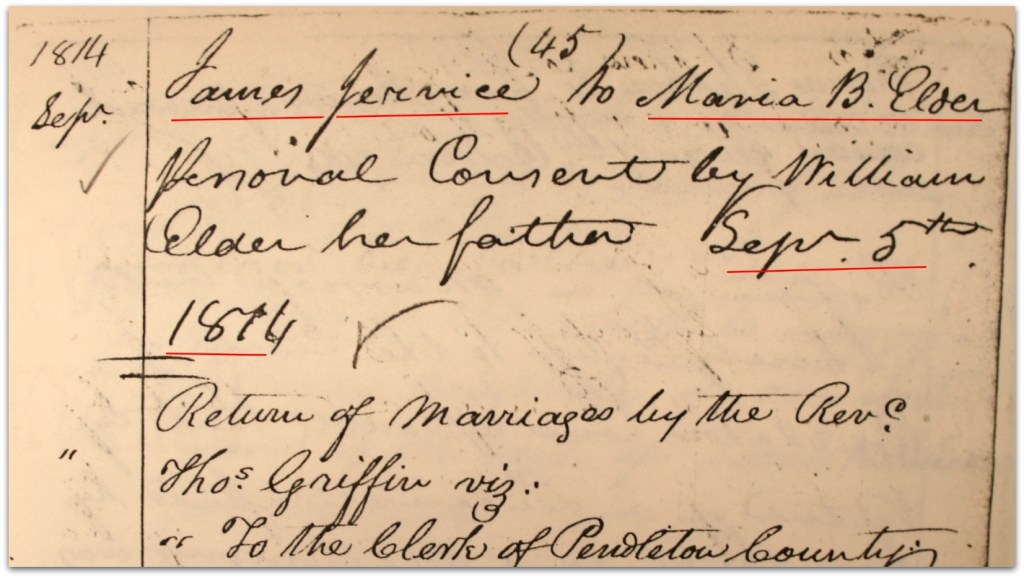 (45)
1814
Sepr.
James Jervice to Maria B. Elder
personal Consent by William
Elder her father Sepr. 5th.
1814
Return of Marriages by the Revd.
"
Thos. Griffin viz:
" To the Clerk of Pendleton County;